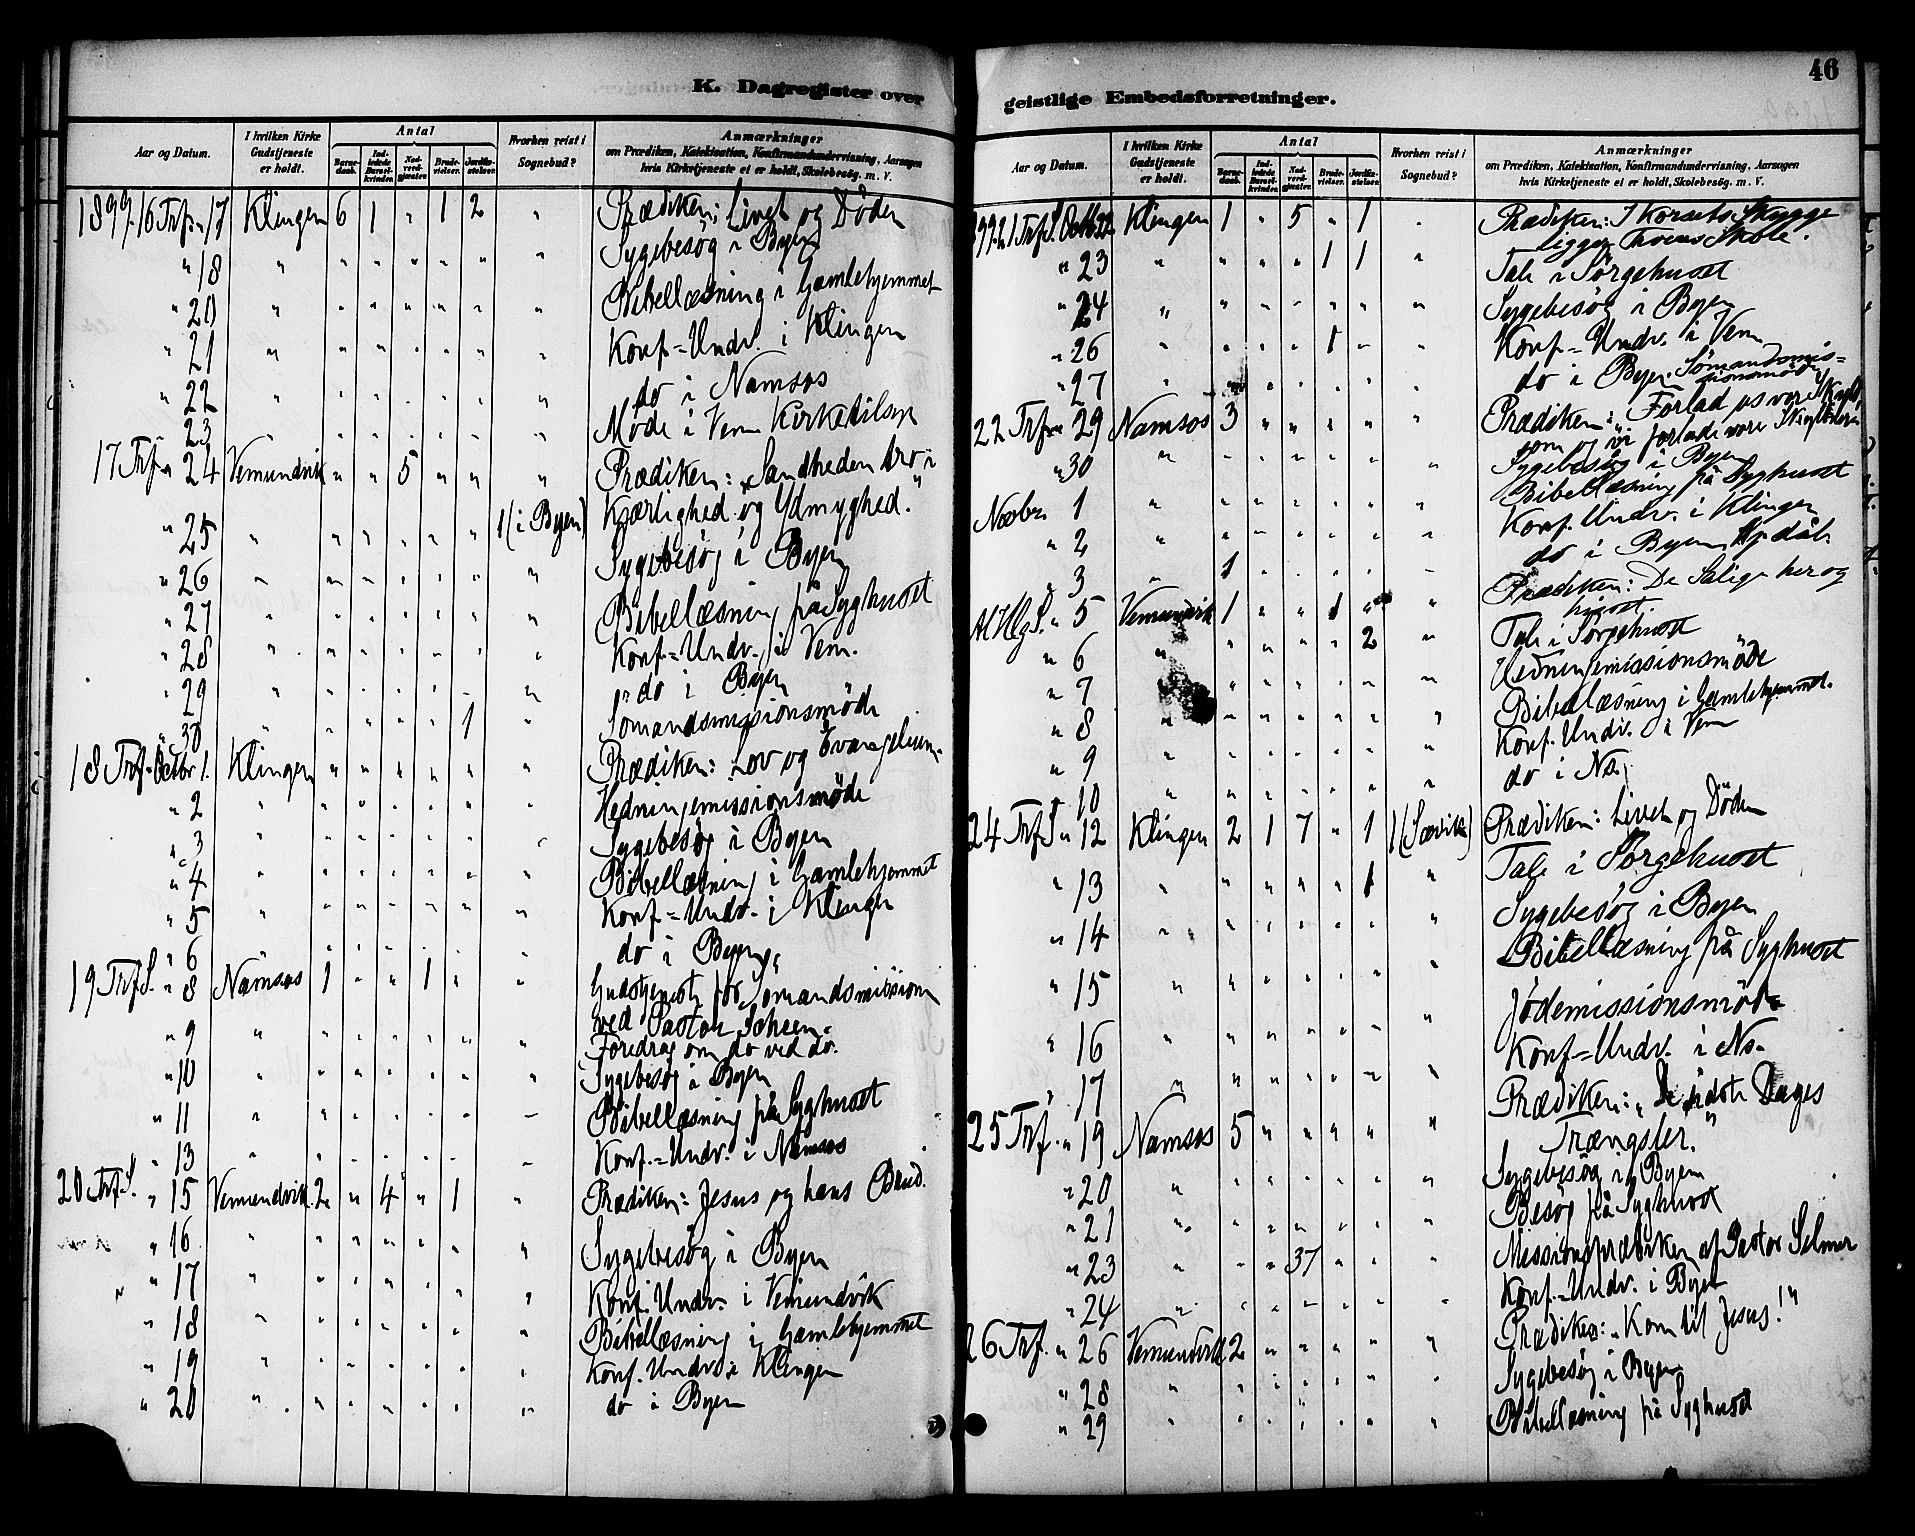 K. Dagregister over
Aar og Datum.
I hvilken Kirke Gudstjeneste er holdt.
Antal
Barnedaab.
Indledede Barselkvinder.
Nadverdgjæster.
Brudevielser.
Jordfæstelser.
Hvorhen reist i Sognebud?
Anmærkninger
om Prædiken, Katekisation, Konfirmandundervisning, Aarsagen
hvis Kirketjeneste ei er holdt, Skolebesøg. m. V.
1899. 16 Trf. " 17 Klingen 6 1 " 1 2 " Prædiken: Livet og Döden
" 18 " " " " " " " Sygebesög i Byen
" 20 " " " " " " " Bibellæsning i Gamlehjemmet
" 21 " " " " " " " Konf=Undv. i Klingen
" 22 " " " " " " " do i Namsos
" 23 " " " " " " " Møde i Vem Kirketilsyn
17 Trf. " 24 Vemundvik " " 5 " " " Prædiken: "Sandheden tro i
Kjærlighed og Ydmyghed."
" 25 " " " " " " 1 (i Byen)
" 26 " " " " " " " Sygebesög i Byen
" 27 " " " " " " " Bibellæsning på Syghuset
" 28 " " " " " " " Konf=Undv. i Vem.
" 29 " " " " " " " do i Byen
" 30 " " " " " 1 " Sömandsmissionsmöde
18 Trf. Octbr 1. Klingen " " " " " " Prædiken: Lov og Evangelium.
" 2 " " " " " " " Hedningemissionsmöde
" 3 " " " " " " " Sygebesög i Byen
" 4 " " " " " " " Bibellæsning i Gamlehjemmet
" 5 " " " " " " " Konf=Undv. i Klingen
" 6 " " " " " " " do i Byen
19 Trf. S. " 8 Namsos 1 " " 1 " " Gudstjeneste for Sömandsmission
ved Pastor
" 9 " " " " " " " Foredrag om do ved do.
" 10 " " " " " " " Sygebesög i Byen
" 11 " " " " " " " Bibellæsning på Syghuset
" 13 " " " " " " " Konf.=Undv. i Namsos
20 Trf. S. " 15 Vemundvik 2 " 4 " 1 " Prædiken: Jesus og hans Brud.
" 16 " " " " " " " Sygebesög i Byen
" 17 " " " " " " " Konf. Undv. i Vemundvik
" 18 " " " " " " " Bibellæsning i Gamlehjemmet
" 19 " " " " " " " Konf. Undv. i Klingen
" 20 " " " " " " " do i Byen
46
geistlige Embedsforretninger.
Aar og Datum.
I hvilken Kirke Gudstjeneste er holdt.
Antal
Barnedaab.
Indledede Barselkvinder.
Nadverdgjæster.
Brudevielser.
Jordfæstelser.
Hvorhen reist i Sognebud?
Anmærkninger
om Prædiken, Katekisation, Konfirmandundervisning, Aarsagen
hvis Kirketjeneste ei er holdt, Skolebesøg. m. V.
99. 21 Trf. S. Octb. 22 Klingen 1 " 5 " 1 " Prædiken: I Korsets Skygge
ligger Troens Skole.
" 23 " " " " 1 1 " Tale i Sörgehuset
" 24 " " " " " " " Sygebesög i Byen
" 26 " " " " 1 " " Konf=Undv. i Vem
" 27 " " " " " " " do i Byen. Sömandsmissionsmöde
22 Trf. " 29 Namsos 3 " " " " " Prædiken: "Forlad os vor Skyld,
som og vi forlade vore Skyldnere
" 30 " " " " " " " Sygebesög i Byen
Novbr. 1 " " " " " " " Bibellæsning på Syghuset
" 2 " " " " " " " Konf. Undv. i Klingen
" 3 " 1 " " " " " do i Byen
Al Hlg S. " 5 Vemundvik 1 " " 1 " " Prædiken: De Salige her og
hisset.
" 6 " " " " " 2 " Tale i Sörgehuset
" 7 " " " " " " Hedningemissionsmöde
" 8 " " " " " " " Bibellæsning i Gamlehjemmet.
" 9 " " " " " " " Konf. Undv. i Vem
" 10 " " " " " " " do i Ns.
24 Trf S " 12 Klingen 2 1 7 " 1 1 (Sævik) Prædiken: Livet og Döden
" 13 " " " " " 1 " Tale i Sörgehuset
" 14 " " " " " " " Sygebesög i Byen
" 15 " " " " " " " Bibellæsning på Syghuset
" 16 " " " " " " " Jödemissionsmöde
" 17 " " " " " " " Konf=Undv. i Ns.
25 Trf. " 19 Namsos 5 " " " " " Prædiken: "De sidste Dages
Trængsler."
" 20 " " " " " " " Sygebesög i Byen
" 21 " " " " " " " Besög på Syghuset
" 23 " " " 37 " " " Missionsprædiken af Pastor Selmer
" 24 " " " " " " " Konf=Undv. i Byen
26 Trf. " 26 Vemundvik 2 " " " " " Prædiken: "Kom til Jesus!"
" 28 " " " " " " " Sygebesög i Byen
" 29 " " " " " " " Bibellæsning på Syghuset